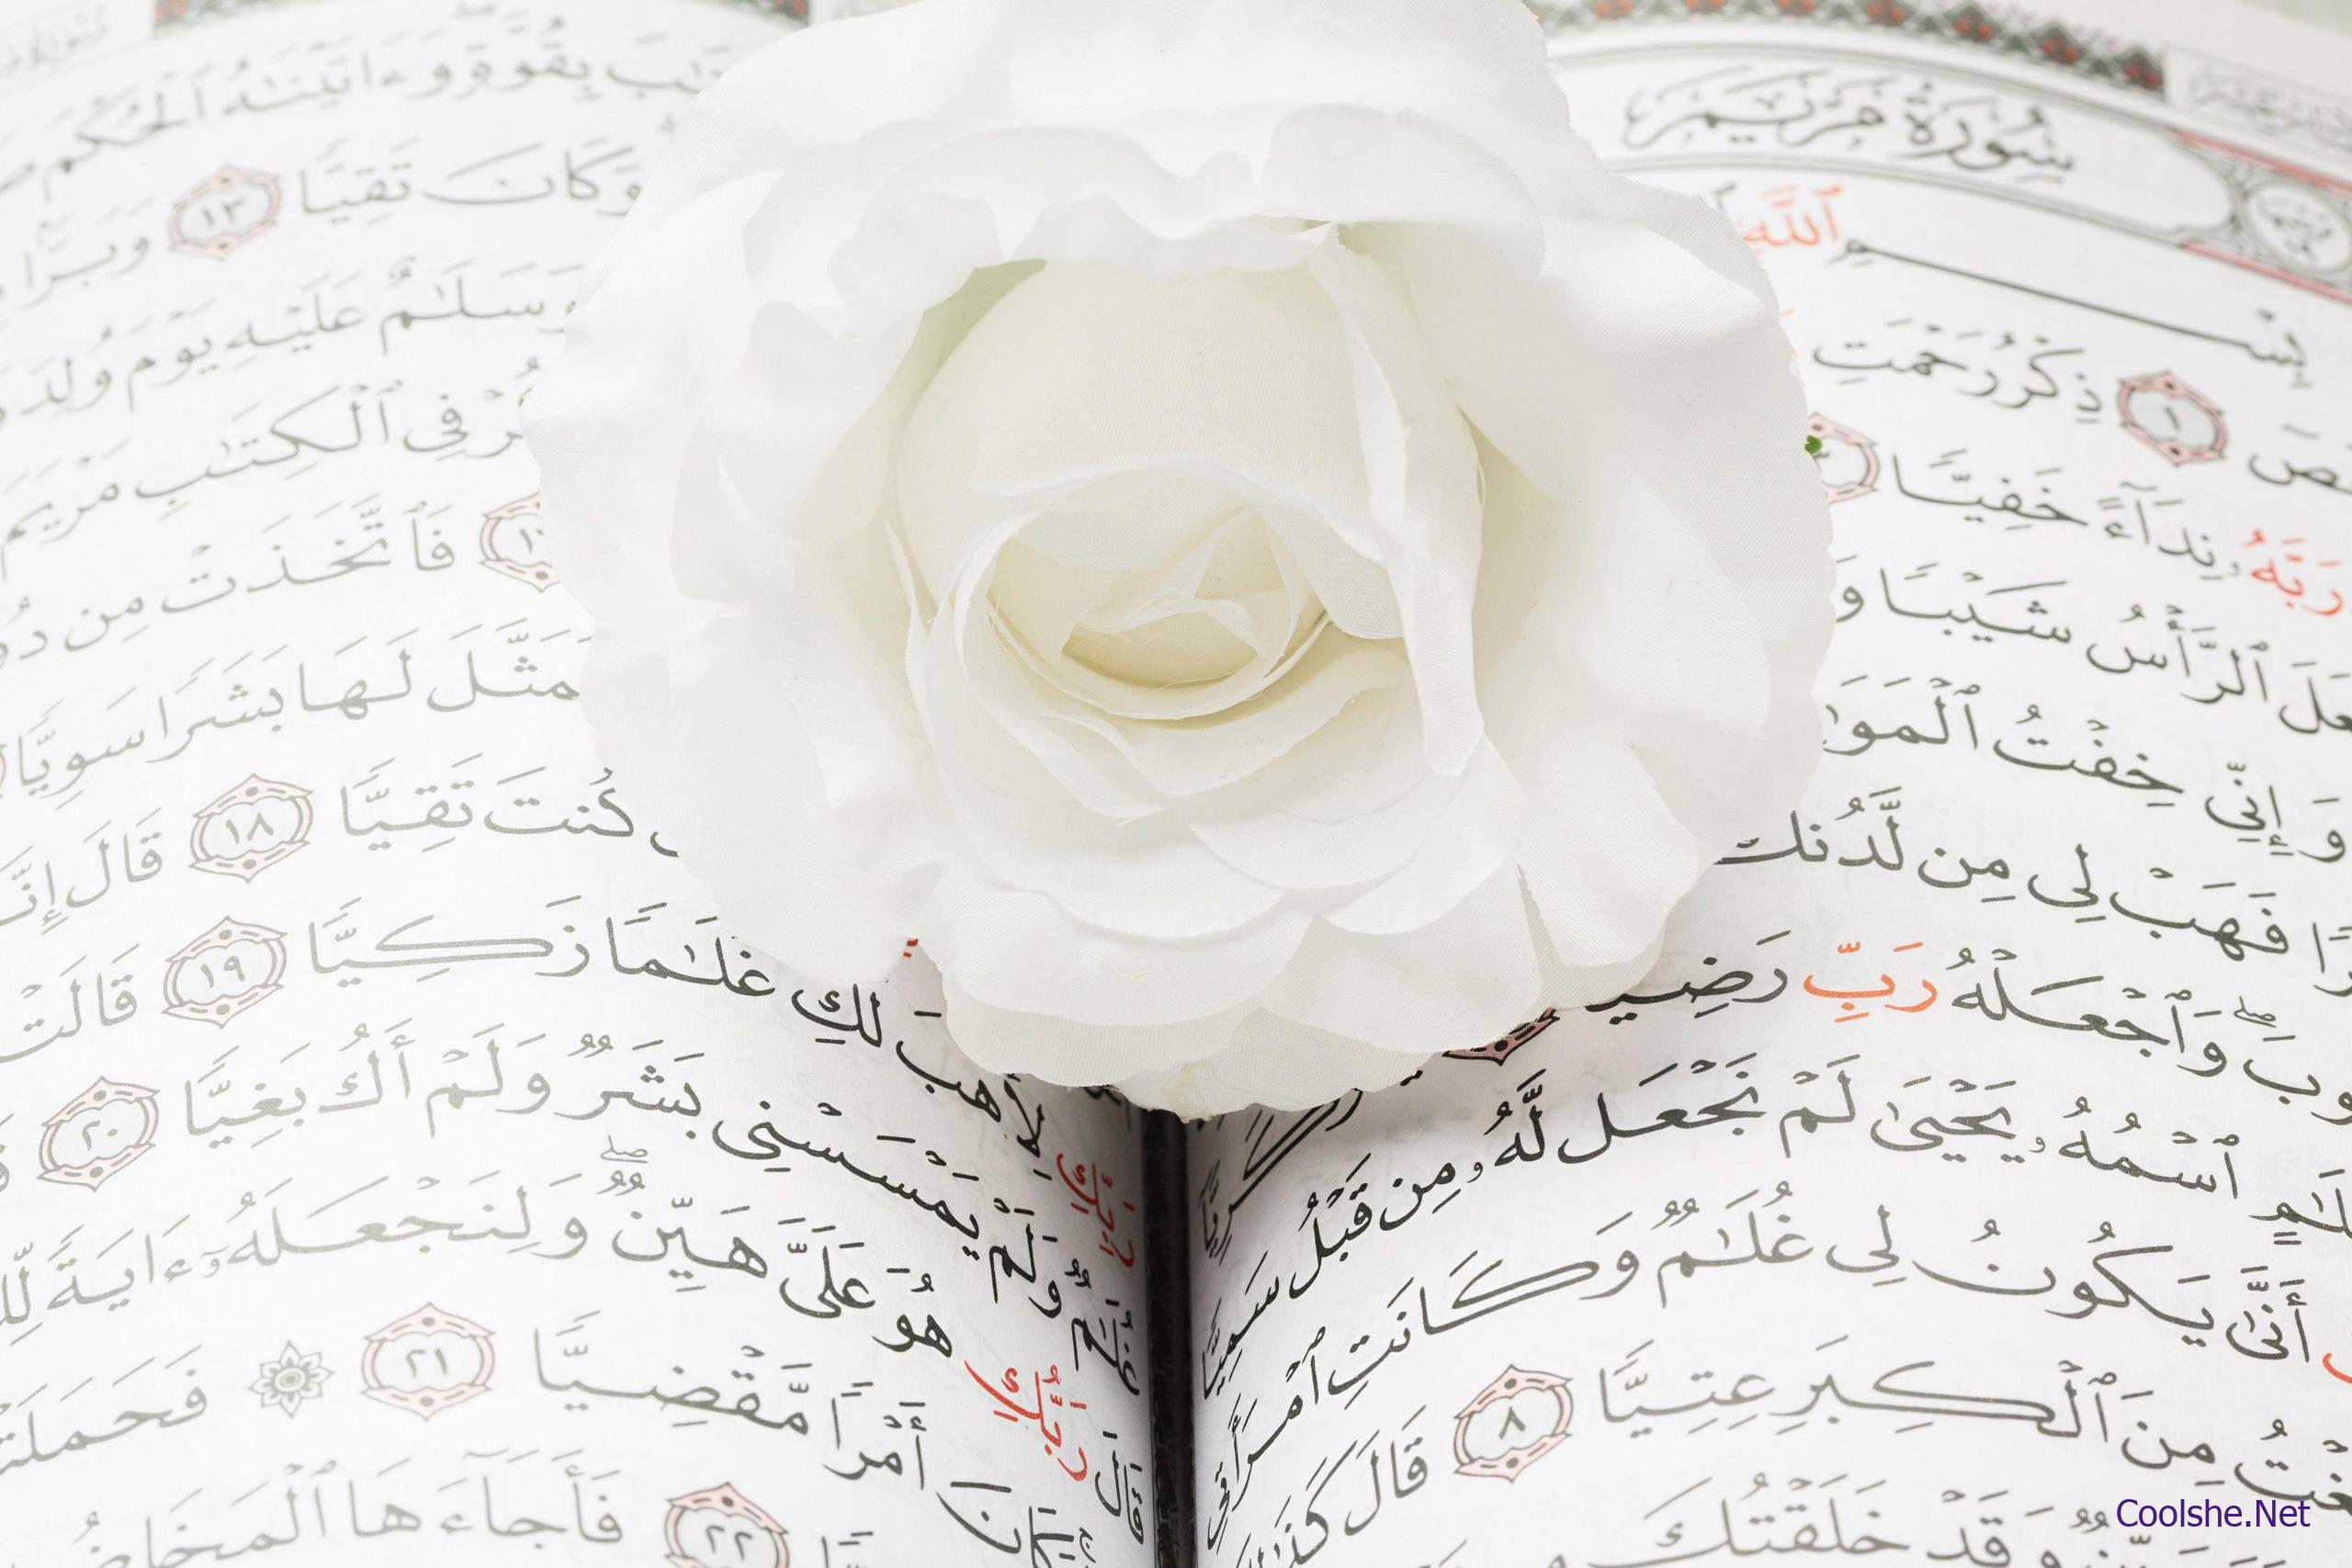 سُورَةُ مَرْيَمَ
بِسْمِ ٱللَّهِ
١ ذِكْرُ رَحْمَتِ
رَبَّهُۥ نِدَآءً خَفِيًّا
ٱلرَّأْسُ شَيْبًا
وَإِنِّى خِفْتُ
فَهَبْ لِى مِن لَّدُنكَ
وَٱجْعَلْهُ رَبِّ رَضِيًّا
ٱسْمُهُۥ يَحْيَىٰ لَمْ نَجْعَل لَّهُۥ مِن قَبْلُ سَمِيًّا
أَنَّىٰ يَكُونُ لِى غُلَٰمٌ وَكَانَتِ ٱمْرَأَتِى
مِنَ ٱلْكِبَرِ عِتِيًّا ٨ قَالَ
وَقَدْ خَلَقْتُكَ
بِقُوَّةٍ وَءَاتَيْنَٰهُ ٱلْحُكْمَ
وَكَانَ تَقِيًّا ١٣ وَبَرًّا
وَسَلَٰمٌ عَلَيْهِ يَوْمَ وُلِدَ
فِى ٱلْكِتَٰبِ مَرْيَمَ
فَٱتَّخَذَتْ مِن
لَهَا بَشَرًا سَوِيًّا
كُنتَ تَقِيًّا ١٨ قَالَ
لِأَهَبَ لَكِ غُلَٰمًا زَكِيًّا ١٩ قَالَتْ
غُلَٰمٌ وَلَمْ يَمْسَسْنِى بَشَرٌ وَلَمْ أَكُ بَغِيًّا ٢٠
قَالَ رَبُّكِ هُوَ عَلَىَّ هَيِّنٌ ۖ وَلِنَجْعَلَهُۥٓ ءَايَةً
أَمْرًا مَّقْضِيًّا ٢١ ۞ فَحَمَلَتْ
٢٢ فَأَجَآءَهَا
Coolshe.Net